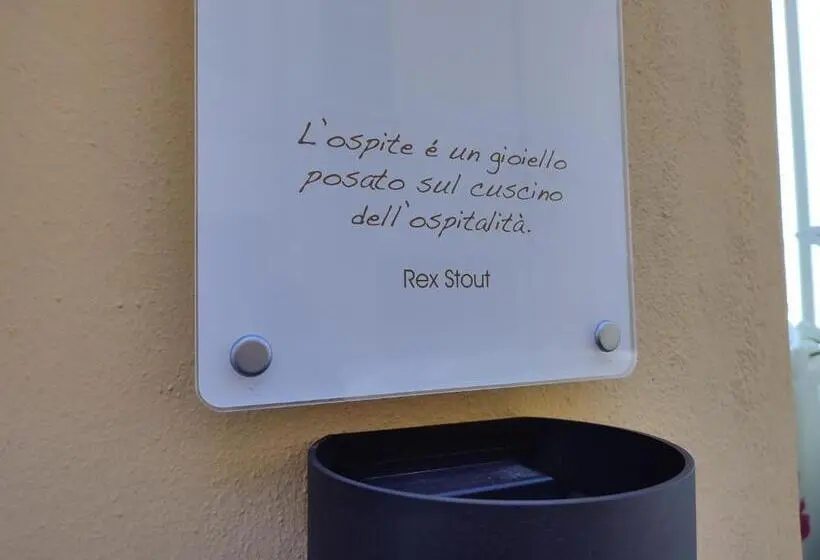 L'ospite é un gioiello
posato sul cuscino
dell'ospitalità.
Rex Stout